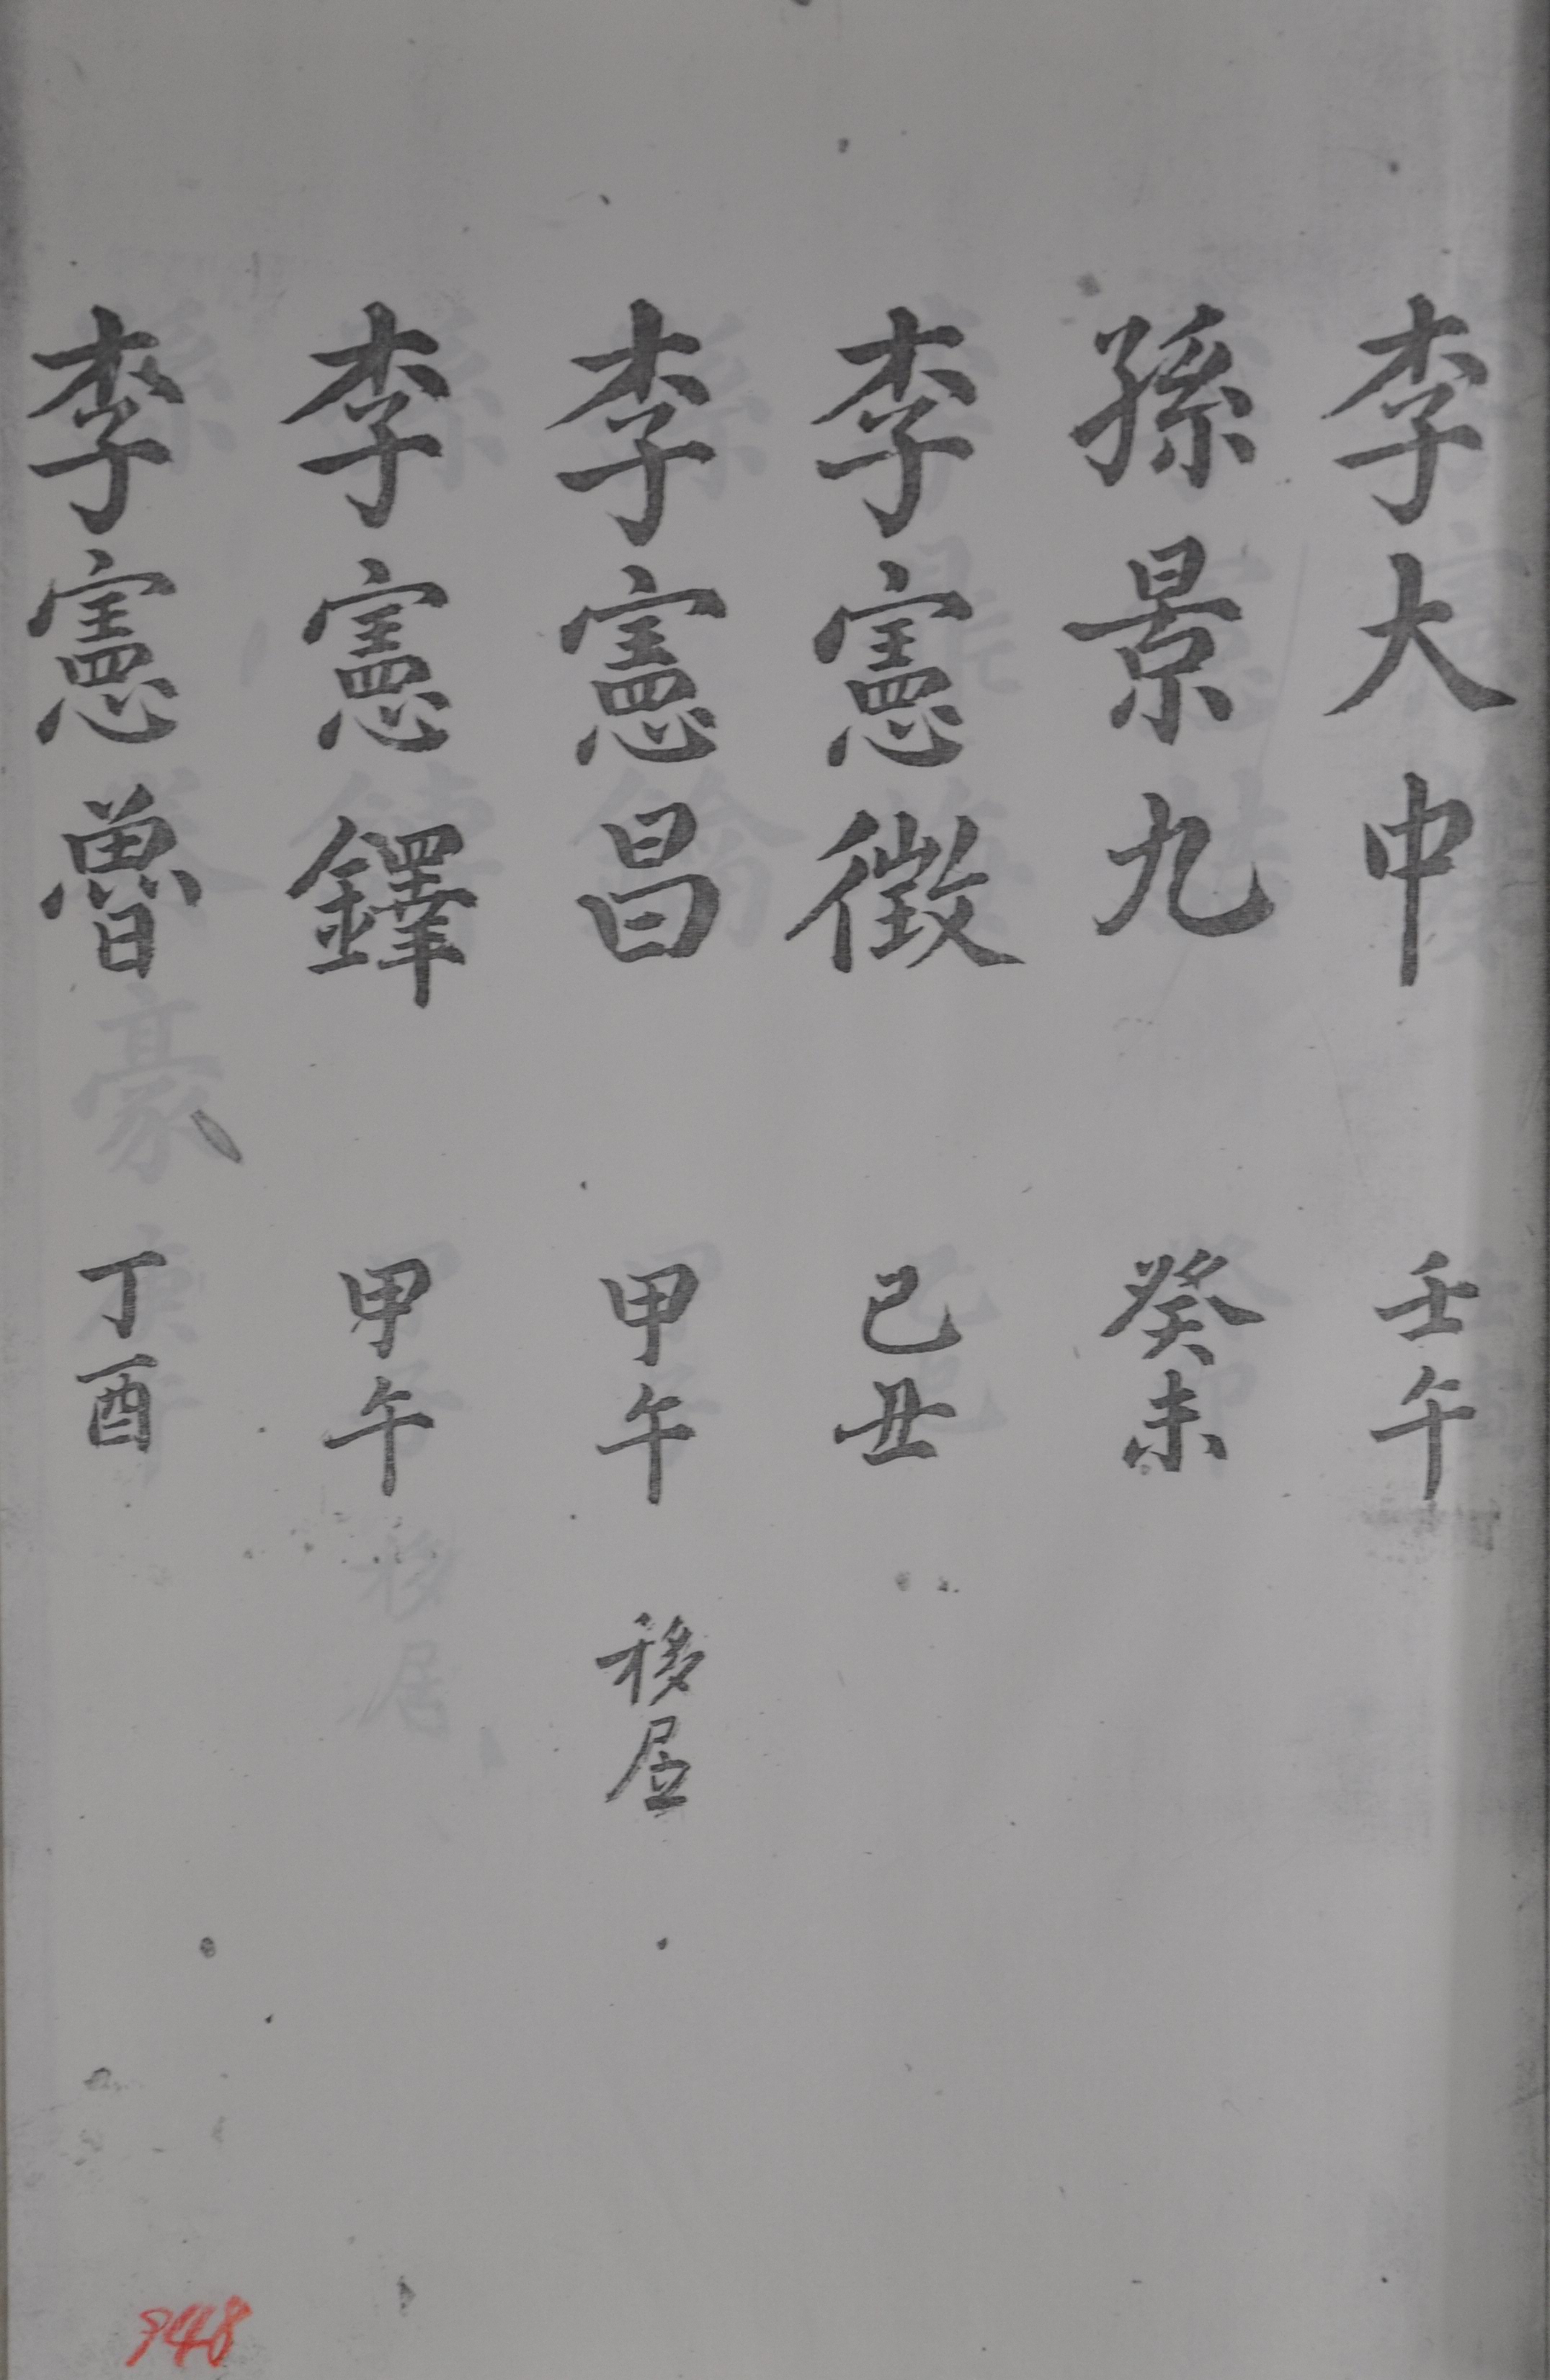 李大中 壬午
孫景九 癸未
李憲徵 己丑
李憲昌 甲午 移居
李憲鐸 甲午
李憲魯 丁酉
948